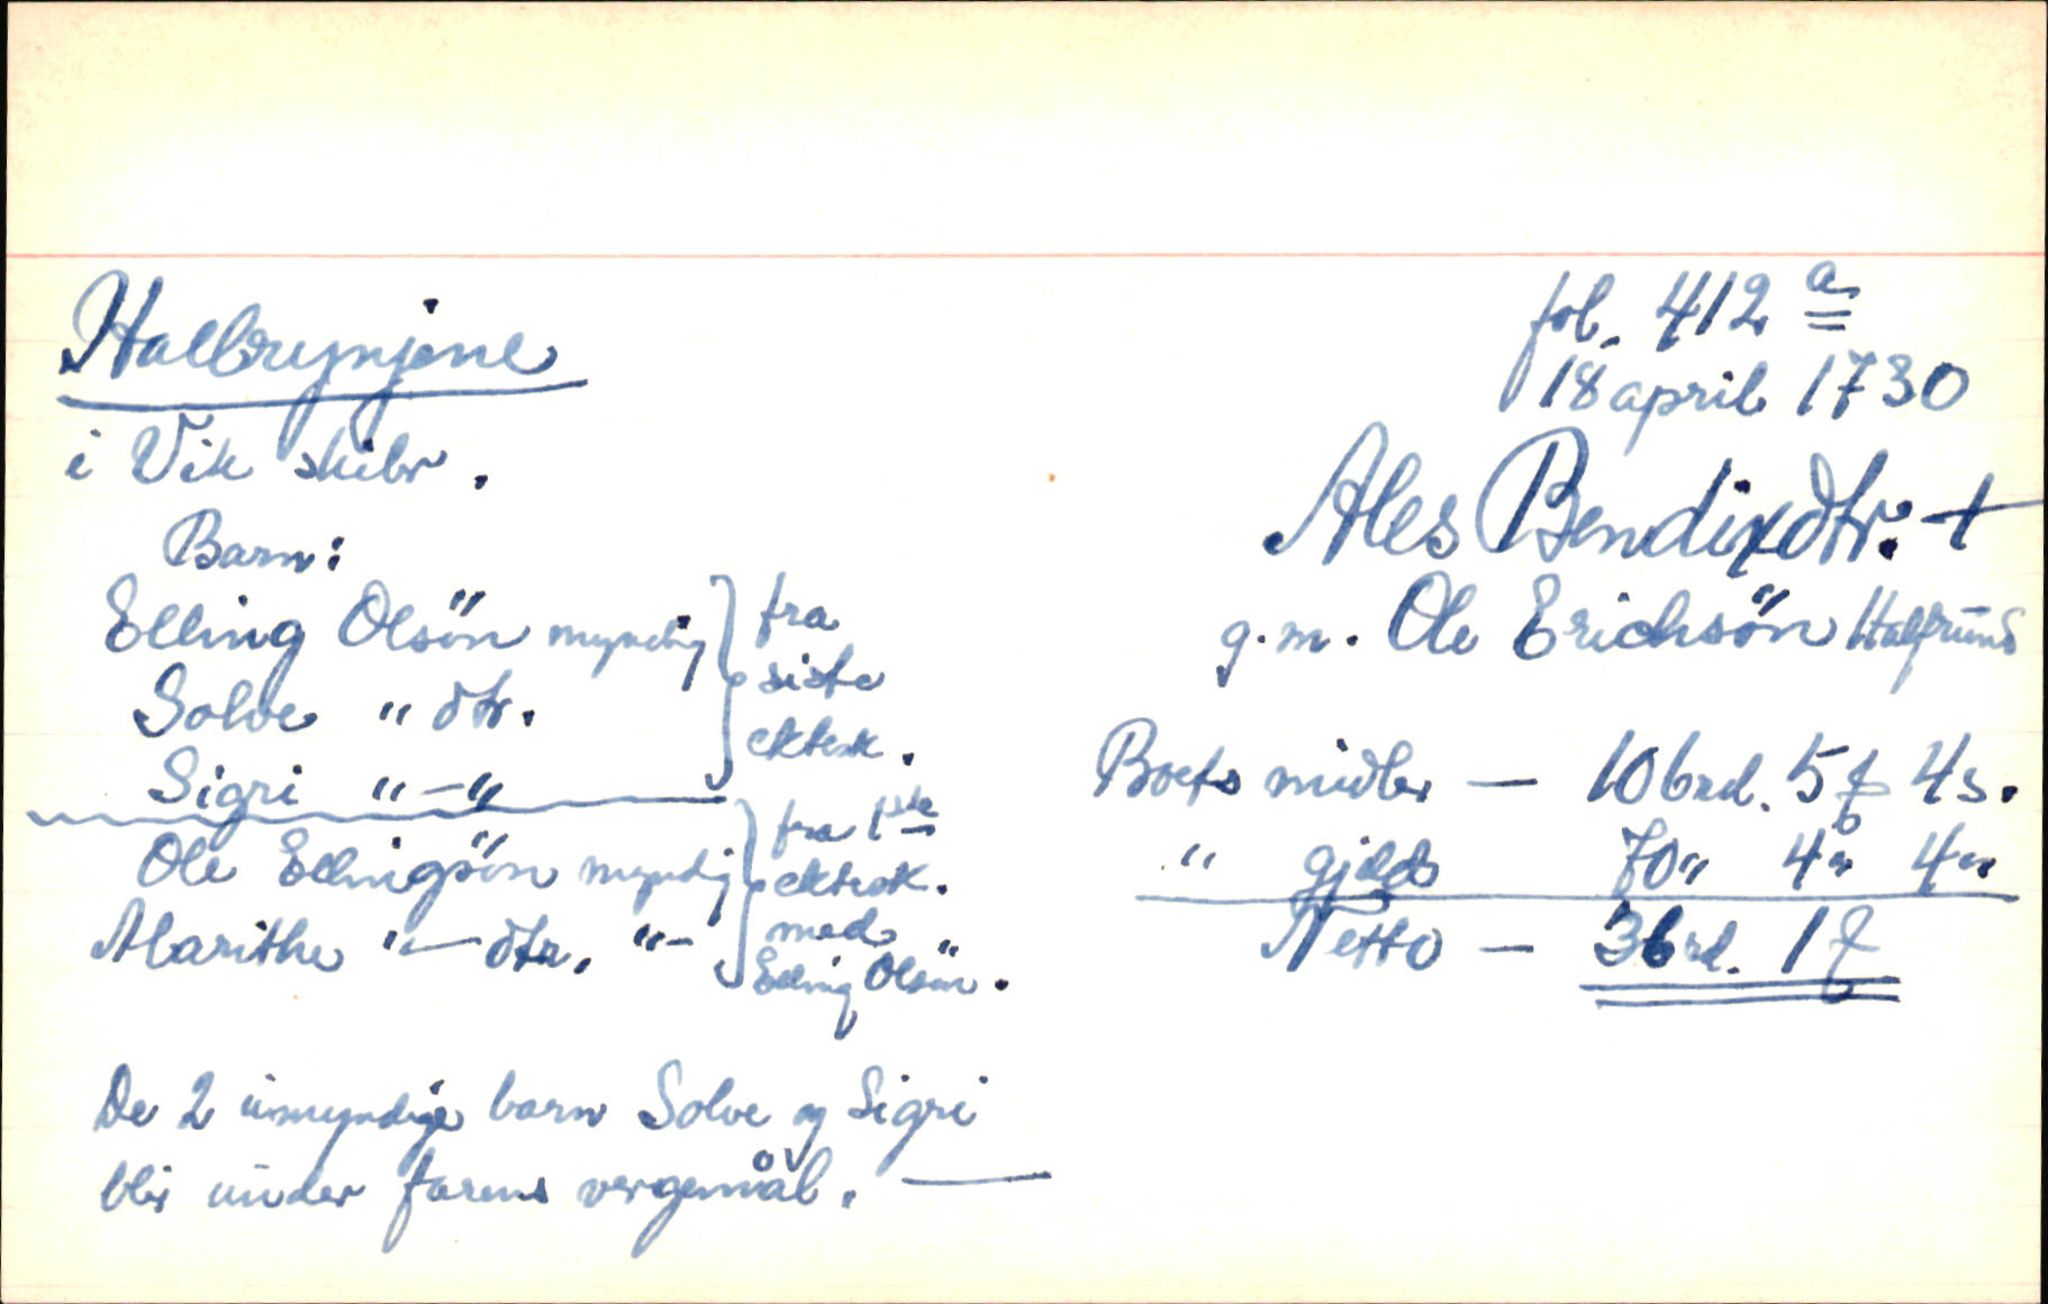 Hallrynjene
i Vik skibr.
fol. 412 a
18 april 1730
Ales Bendixdtr. +
g.m. Ole Erichsön Halfruns
Barn:
Elling Olsön myndig } fra
Solve " dtr. siste
Sigri " - " ektesk.
Ole Ellingsön myndig } fra 1ste
Marithe " — dtr. " - ektesk.
med
Elling Olsön.
Boets midler — 106 rd. 5 ƒ 4 s.
" gjeld 70 " 4 " 4 "
Netto — 36 rd. 1 ƒ
De 2 umyndige barn Solve og Sigri
blir under farens vergemål. —